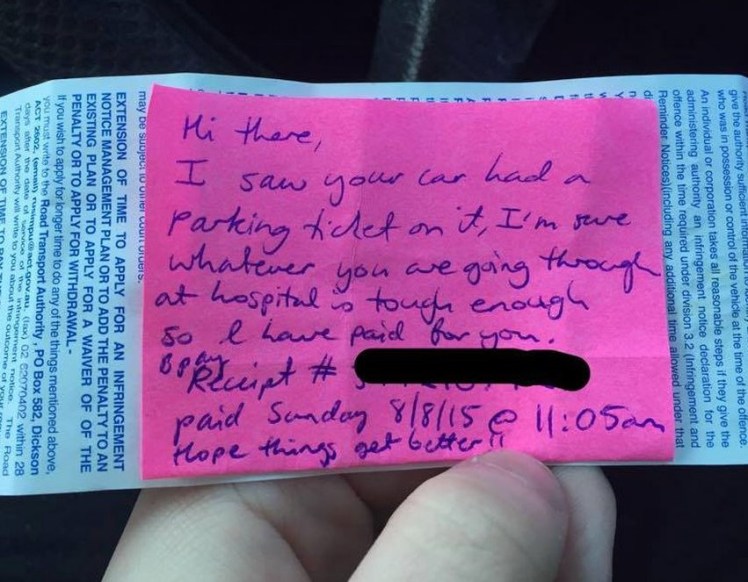 Hi there,
I saw your car had a
parking ticket on it, I'm sure
whatever you are going through
at hospital is tough enough
so I have paid for you.
Bpay
Receipt #
paid Sunday 8/8/15 @ 11:05am
Hope things get better!!
give the authority sufficient
who was in possession or control of the vehicle at the time of the offence.
An individual or corporation takes all reasonable steps if they give the
administering authority an infringement notice declaration for the
offence within the time required under division 3.2 (Infringement and
Reminder Notices)(including any additional time allowed under that
may be subject to other court orders.
EXTENSION OF TIME TO APPLY FOR AN INFRINGEMENT
NOTICE MANAGEMENT PLAN OR TO ADD THE PENALTY TO AN
EXISTING PLAN OR TO APPLY FOR A WAIVER OF OF THE
PENALTY OR TO APPLY FOR WITHDRAWAL -
If you wish to apply for longer time to do any of the things mentioned above,
you must write to the Road Transport Authority - PO Box 582, Dickson
ACT 2602, (email) @act.gov.au, (fax) 02 62070402 within 28
days after the date of Service of the infringement notice. The Road
Transport Authority will write to you about the outcome of your
EXTENSION OF TIME TO